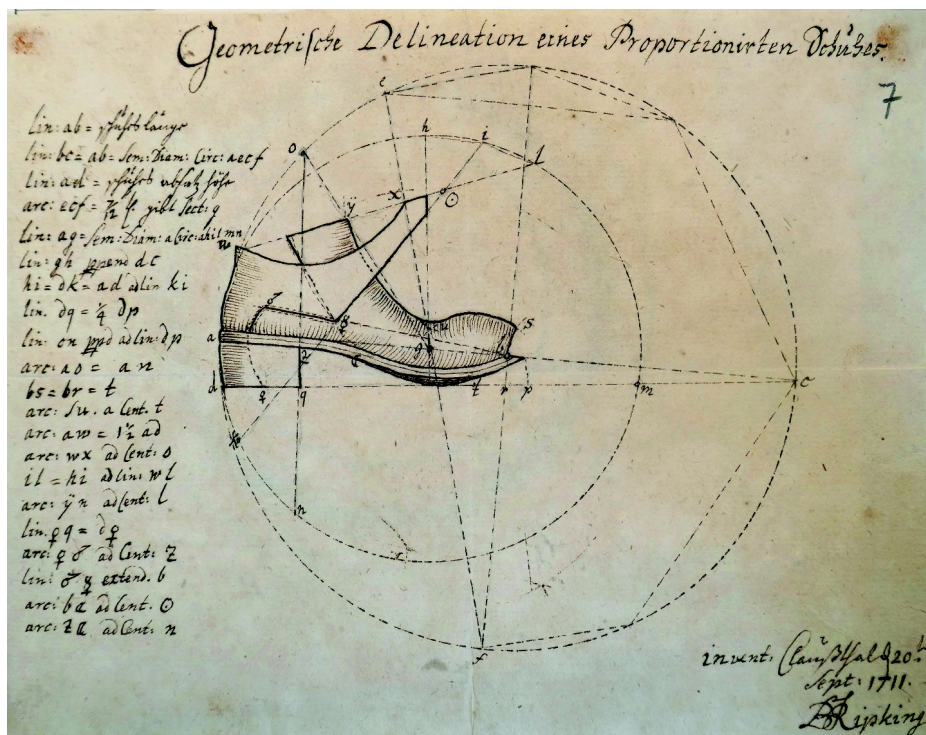 Geometrische Delineation eines Proportionirten Schuhes.
7
lin: ab = schuhes länge
lin: bc = ab = Sem: Diam: Circ: aecf
lin: ad = schuhes absatz höhe
arc: ecf = 7/12 gibt sect: g
lin: ag = Sem: Diam: a Circ: ahilmn
lin: gh ppend dc
hi = dk = ad ad lin ki
lin. dq = 1/4 dp
lin: on ppd ad lin: dp
arc: ao = an
bs = br = t
arc: su. a Cent. t
arc: aw = 1 1/2 ad
arc: wx ad Cent: o
il = hi ad lin: wl
arc: ÿn ad Cent: l
lin. ♀q = d♀
arc: ♀ ♂ ad Cent: Z
lin: ♂ ☿ extend. b
arc: b☾ ad Cent. ☉
arc: Z☾ ad Cent: n
e
h
i
l
o
ÿ
x
☉
w
♂
s
u
a
g
z
d
♀
q
t
r
p
m
c
k
n
f
invent. Claußthal d 20t
Sept: 1711.
Ripking